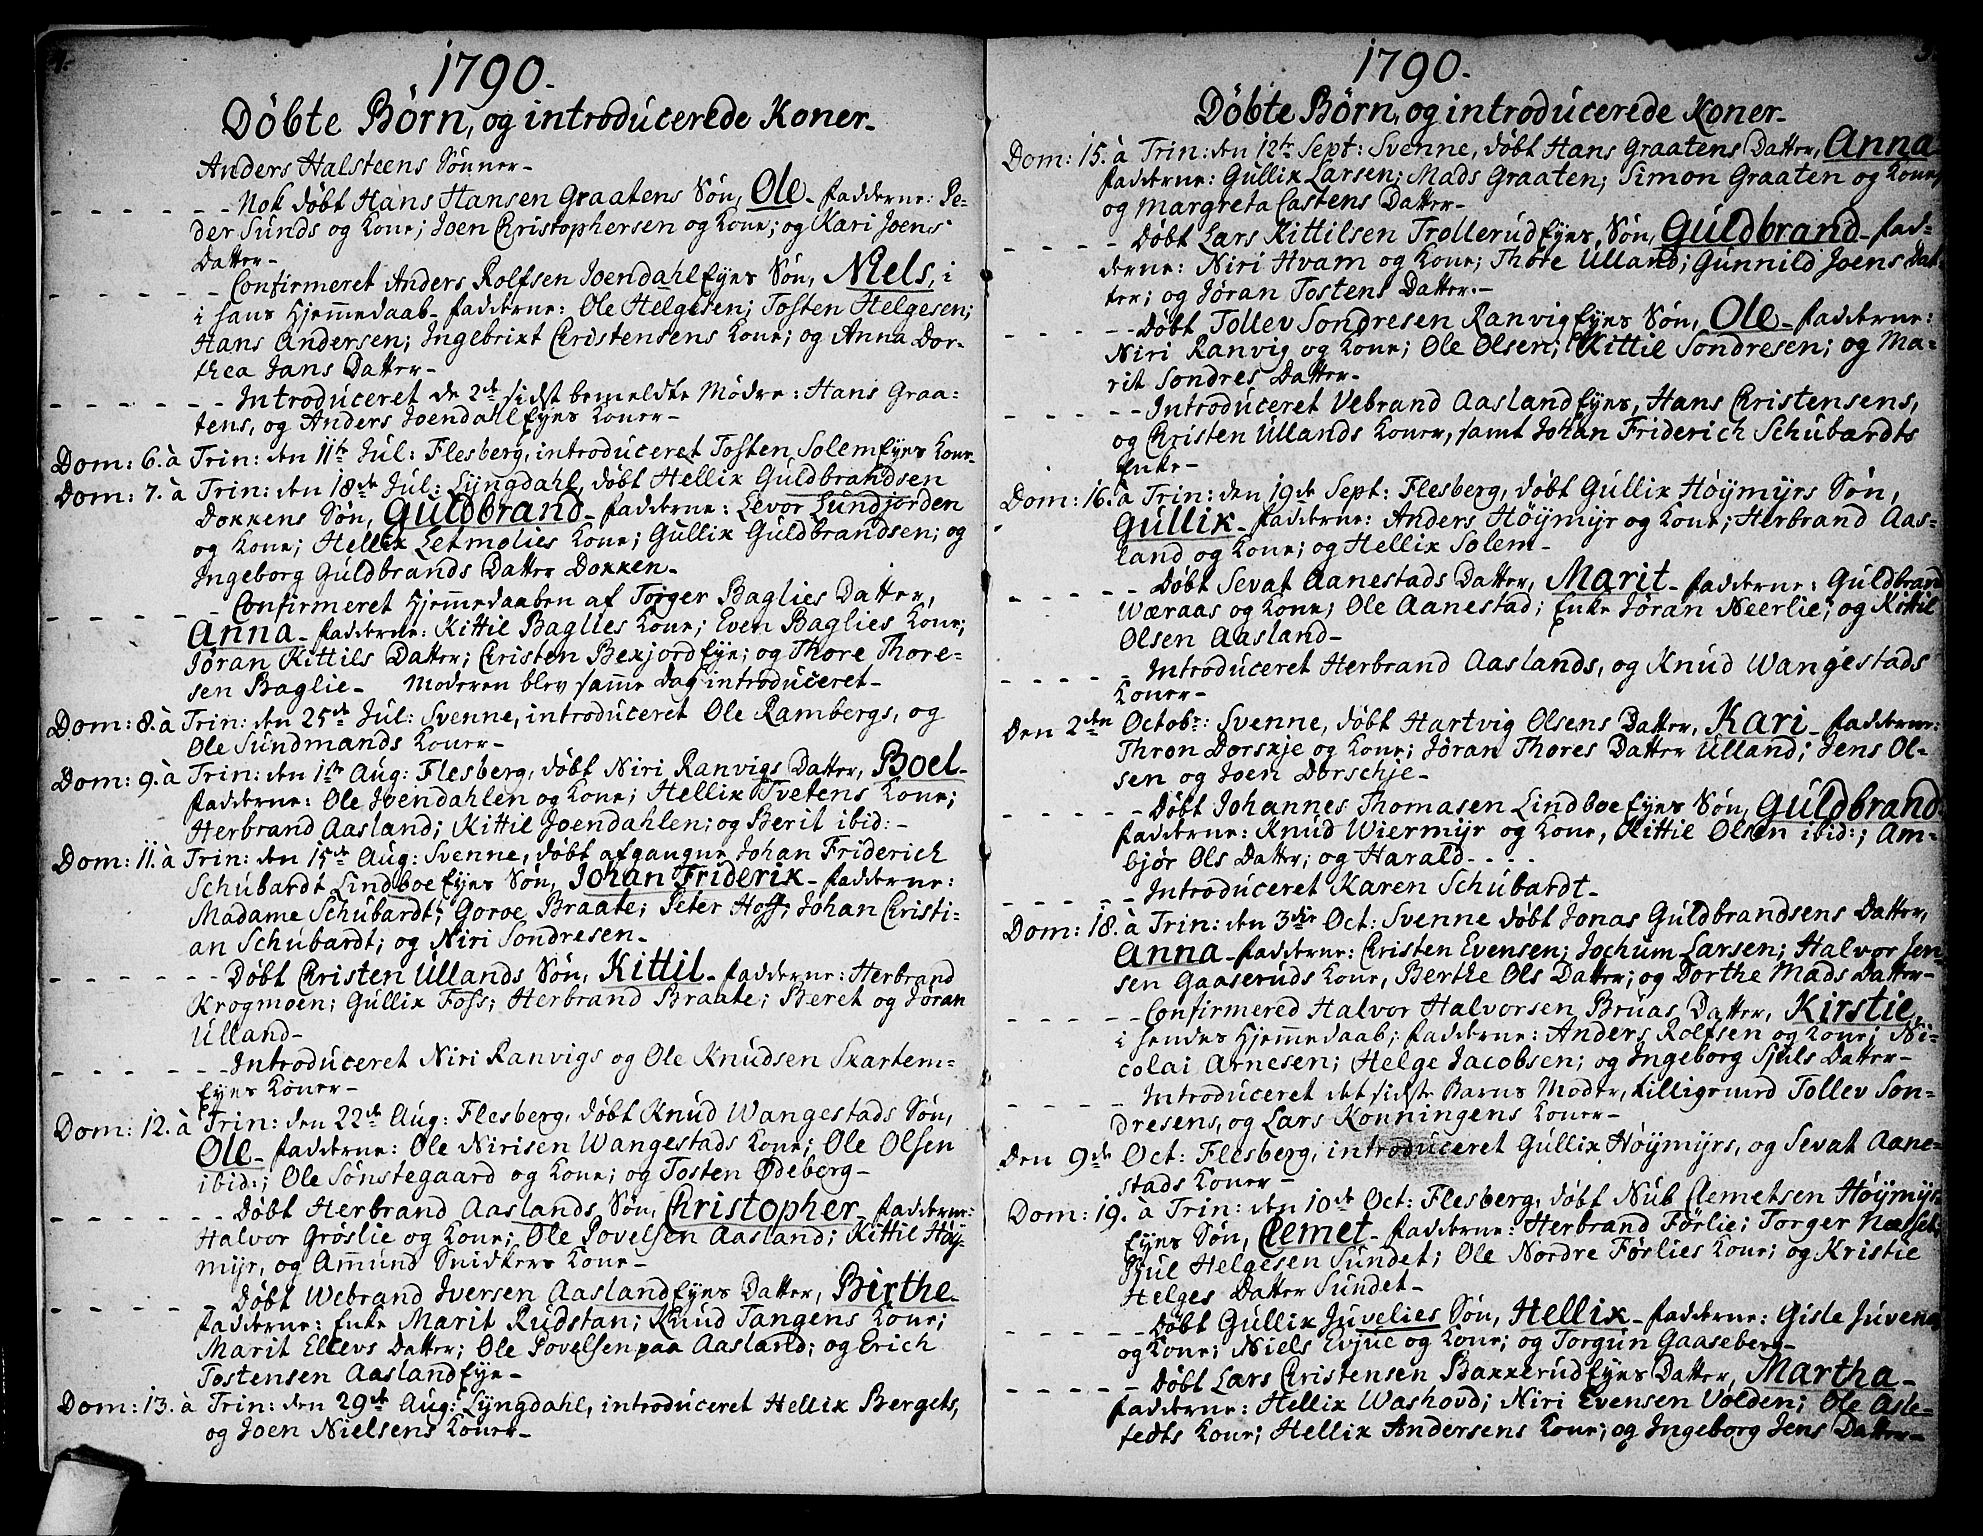 4.
1790.
Döbte Börn, og introducerede Koner.
Anders Halsteens Sönner.
Nok döbt Hans Hansen Graatens Sön, Ole. fadderne: Pe-
der Sunds og Kone; Joen Christophersen og Kone; og Kari Joens
Datter.
Confirmeret Anders Rolfsen Joendahl Eyes Sön, Niels, i
i hans Hjemmedaab. fadderne: Ole Helgesen; Tosten Helgesen;
Hans Andersen; Ingebrixt Christensens Kone; og Anna Dor-
thea Jans Datter.
Introduceret de 2de sidst bemeldte Mødre: Hans Graa-
tens, og Anders Joendahl Eyes Koner.
Dom: 6. à Trin: den 11te Jul: Flesberg, introduceret Tosten Solem Eyes Kone.
Dom: 7. à Trin: den 18de Jul: Lyngdahl, döbt Hellix Guldbrandsen
Doxkens Sön, Guldbrand. fadderne: Levor Lundjorden
og Kone; Hellix Letmolies Kone; Gullix Guldbrandsen; og
Ingeborg Guldbrands Datter Doxken.
Confirmeret Hjemmedaaben af Torger Baglies Datter,
Anna. fadderne: Kittil Baglies Kone; Even Baglies Kone;
Jöran Kittils Datter; Christen Bexjord Eye; og Thore Thore-
sen Baglie. Moderen blev samme Dag introduceret.
Dom: 8. à Trin: den 25de Jul: Svenne, introduceret Ole Rambergs, og
Ole Sundmands Koner.
Dom: 9. à Trin: den 1ste Aug: Flesberg, döbt Niri Ranvigs Datter, Boel.
fadderne: Ole Joendahlen og Kone; Hellix Tvetens Kone;
Herbrand Aasland; Kittil Joendahlen; og Berit ibid:.
Dom: 11. à Trin: den 15de Aug: Svenne, döbt afgangne Johan Friderich
Schubardt Lindboe Eyes Sön, Johan Friderix. fadderne:
Madame Schubardt; Goroe Braate; Peter Hoff; Johan Christi-
an Schubardt; og Niri Sondresen.
Döbt Christen Ullands Sön, Kittil. fadderne: Herbrand
Krogmoen; Gullix Foss; Herbrand Braate; Beret og Jöran
Ulland.
Introduceret Niri Ranvigs og Ole Knudsen Skartem-
Eyes Koner.
Dom: 12. à Trin: den 22de Aug: Flesberg, döbt Knud Wangestads Sön,
Ole. fadderne: Ole Nirisen Wangestads Kone; Ole Olsen
ibid:; Ole Sönstegaard og Kone; og Tosten Ödeberg.
Döbt Herbrand Aaslands Sön, Christopher. fadderne:
Halvor Gröslie og Kone; Ole Povelsen Aasland; Kittil Höy-
myr, og Amund Snidkers Kone.
Döbt Webrand Iversen Aasland Eyes Datter, Birthe.
fadderne: Enke Marit Rudstan; Knud Tangens Kone;
Marit Ellevs Datter; Ole Povelsen paa Aasland; og Erich
Tostensen Aasland Eye.
Dom: 13. à Trin: den 29de Aug: Lyngdahl, introduceret Hellix Bergets,
og Joen Nielsens Koner.
1790.
Döbte Börn, og introducerede Koner.
Dom: 15. à Trin: den 12te Sept: Svenne, döbt Hans Graatens Datter, Anna.
fadderne: Gullix Larsen; Mads Graaten; Simon Graaten og Kone;
og Margreta Castens Datter.
Döbt Lars Kittilsen Trollerud Eyes Sön, Guldbrand. fad-
derne: Niri Hvam og Kone; Thore Ulland; Gunnild Joens Dat-
ter; og Jöran Tostens Datter.
Döbt Tollev Sondresen Ranvig Eyes Sön, Ole. fadderne:
Niri Ranvig og Kone; Ole Olsen; Kittil Sondresen; og Ma-
rit Sondres Datter.
Introduceret Vebrand Aasland Eyes, Hans Christensens,
og Christen Ullands Koner, samt Johan Friderich Schubardts
Enke.
Dom: 16. à Trin: den 19de Sept: Flesberg, döbt Gullix Höymyrs Sön,
Gullix. fadderne: Anders Höymyr og Kone; Herbrand Aas-
land og Kone; og Hellix Solem.
Döbt Sevat Aanestads Datter, Marit. fadderne: Guldbrand
Wæraas og Kone; Ole Aanestad; Enke Jöran Neerlie; og Kittil
Olsen Aasland.
Introduceret Herbrand Aaslands, og Knud Wangestads
Koner.
Den 2den Octobr: Svenne, döbt Hartvig Olsens Datter, Kari. fadderne:
Thron Dorskje og Kone; Jöran Thores Datter Ulland; Jens Ol-
sen og Joen Dorschje.
Döbt Johannes Thomasen Lindboe Eyes Sön, Guldbrand.
fadderne: Knud Wiermyr og Kone, Kittil Olsen ibid:; Am-
björ Ols Datter; og Harald - - - -
Introduceret Karen Schubardt.
Dom: 18. à Trin: den 3die Oct: Svenne döbt Jonas Guldbrandsens Datter,
Anna. fadderne: Christen Evensen; Jochum Larsen; Halvor Jen-
sen Gaaseruds Kone, Berthe Ols Datter; og Dorthe Mads Datter.
Confirmered Halvor Halvorsen Bruas Datter, Kirstie,
i hendes Hjemmedaab; fadderne: Anders Rolfsen og Kone; Ni-
colai Arnesen; Helge Jacobsen; og Ingeborg Sjuls Datter.
Introduceret det sidste Barns Moder, tilligemed Tollev Son-
dresens, og Lars Konningens Koner.
Den 9de Oct: Flesberg, introduceret Gullix Höymyrs, og Sevat Aane-
stads Koner.
Dom: 19. à Trin: den 10de Oct: Flesberg, döbt Nub Clemetsen Höymyr
Eyes Sön, Clemet. fadderne: Herbrand Förlie; Torger Næsset;
Sjul Helgesen Sundet; Ole Nordre Förlies Kone; og Kristie
Helges Datter Sundet.
Döbt Gullix Juvelies Sön, Hellix. fadderne: Gisle Juvens
og Kone; Niels Evjue og Kone; og Torgun Gaaseberg.
Döbt Lars Christensen Baxkerud Eyes Datter, Martha.
fadderne: Hellix Washovd; Niri Evensen Volden; Ole Asle-
fedts Kone; Hellix Andersens Kone; og Ingeborg Jens Datter.